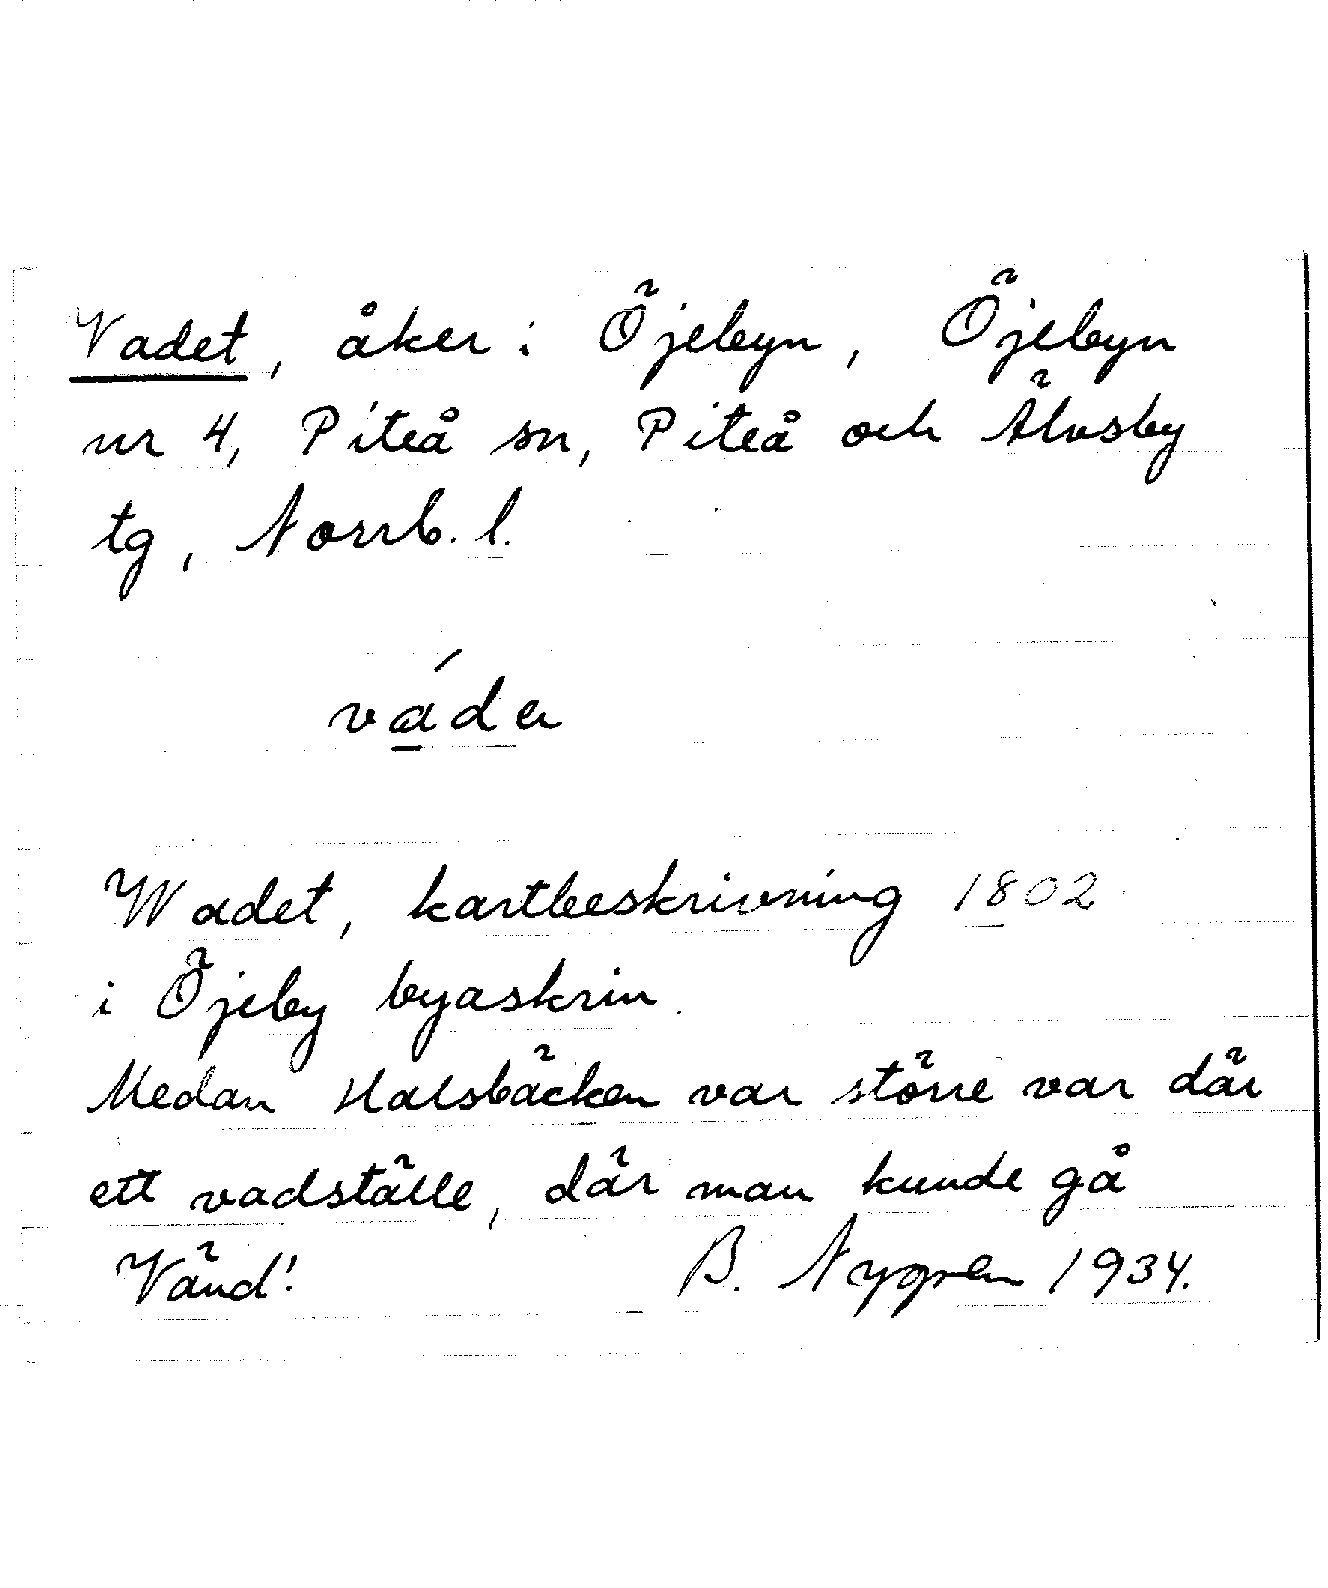 Vadet, åker i Öjebyn, Öjebyn
nr 4, Piteå sn, Piteå och Älvsby
tg, Norrb. l.
váda
Wadet, kartbeskrivning 1802
i Öjeby byaskrin.
Medan Halsbäcken var större var där
ett vadställe, där man kunde gå
Vänd! B. Nygren 1934.